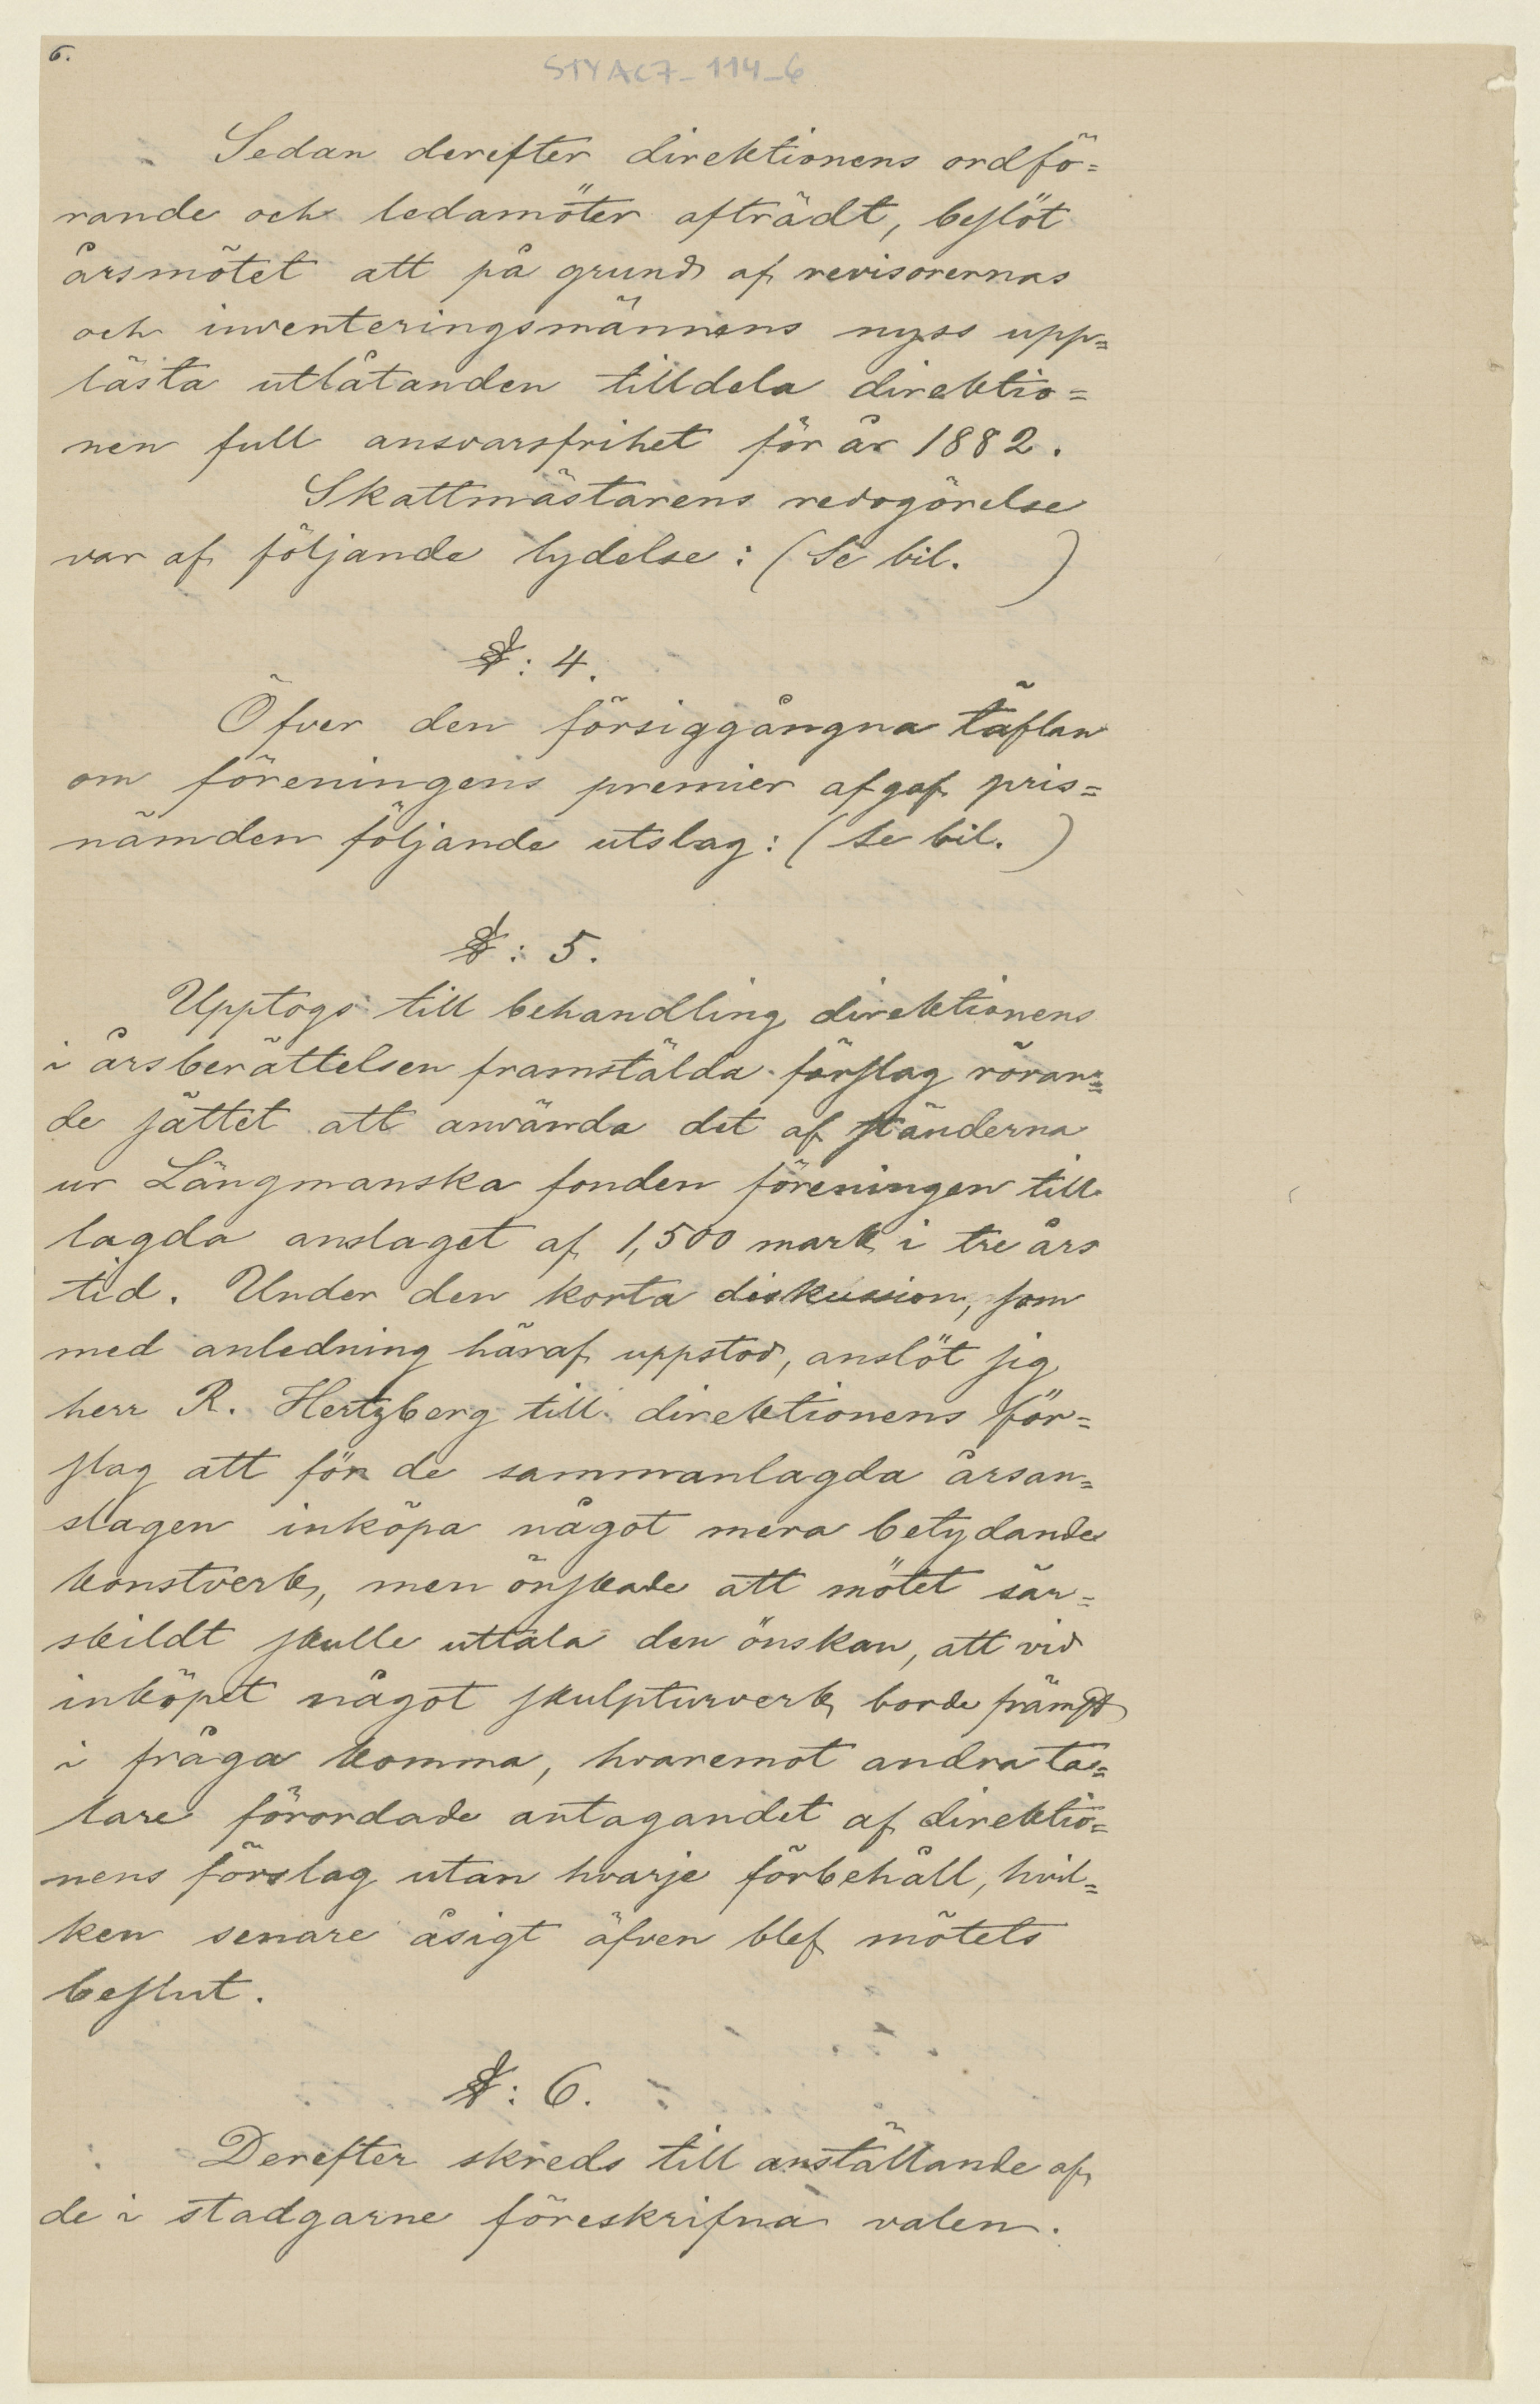 6.
STYAC7_114_6
Sedan derefter direktionens ordfö=
rande och ledamöter afträdt, beslöt
årsmötet att på grund af revisorernas
och inventeringsmännens nyss upp=
lästa utlåtanden tilldela direktio=
nen full ansvarsfrihet för år 1882.
Skattmästarens redogörelse
var af följande lydelse: (Se bil. )
§: 4.
Öfver den försiggångna täflan
om föreningens premier afgaf pris=
nämden följande utslag: (Se bil. )
§: 5.
Upptogs till behandling direktionens
i årsberättelsen framstälda förslag röran=
de sättet att använda det af ständerna
ur Längmanska fonden föreningen till
lagda anslaget af 1,500 mark i tre års
tid. Under den korta diskussion, som
med anledning häraf uppstod, anslöt sig
herr R. Hertzberg till direktionens för=
slag att för de sammanlagda årsan=
slagen inköpa något mera betydande
konstverk, men önskade att mötet sär=
skildt skulle uttala den önskan, att vid
inköpet något skulpturverk borde främst
i fråga komma, hvaremot andra ta=
lare förordade antagandet af direktio=
nens förslag utan hvarje förbehåll, hvil=
ken senare åsigt äfven blef mötets
beslut.
§: 6.
Derefter skreds till anställande af
de i stadgarne föreskrifna valen.